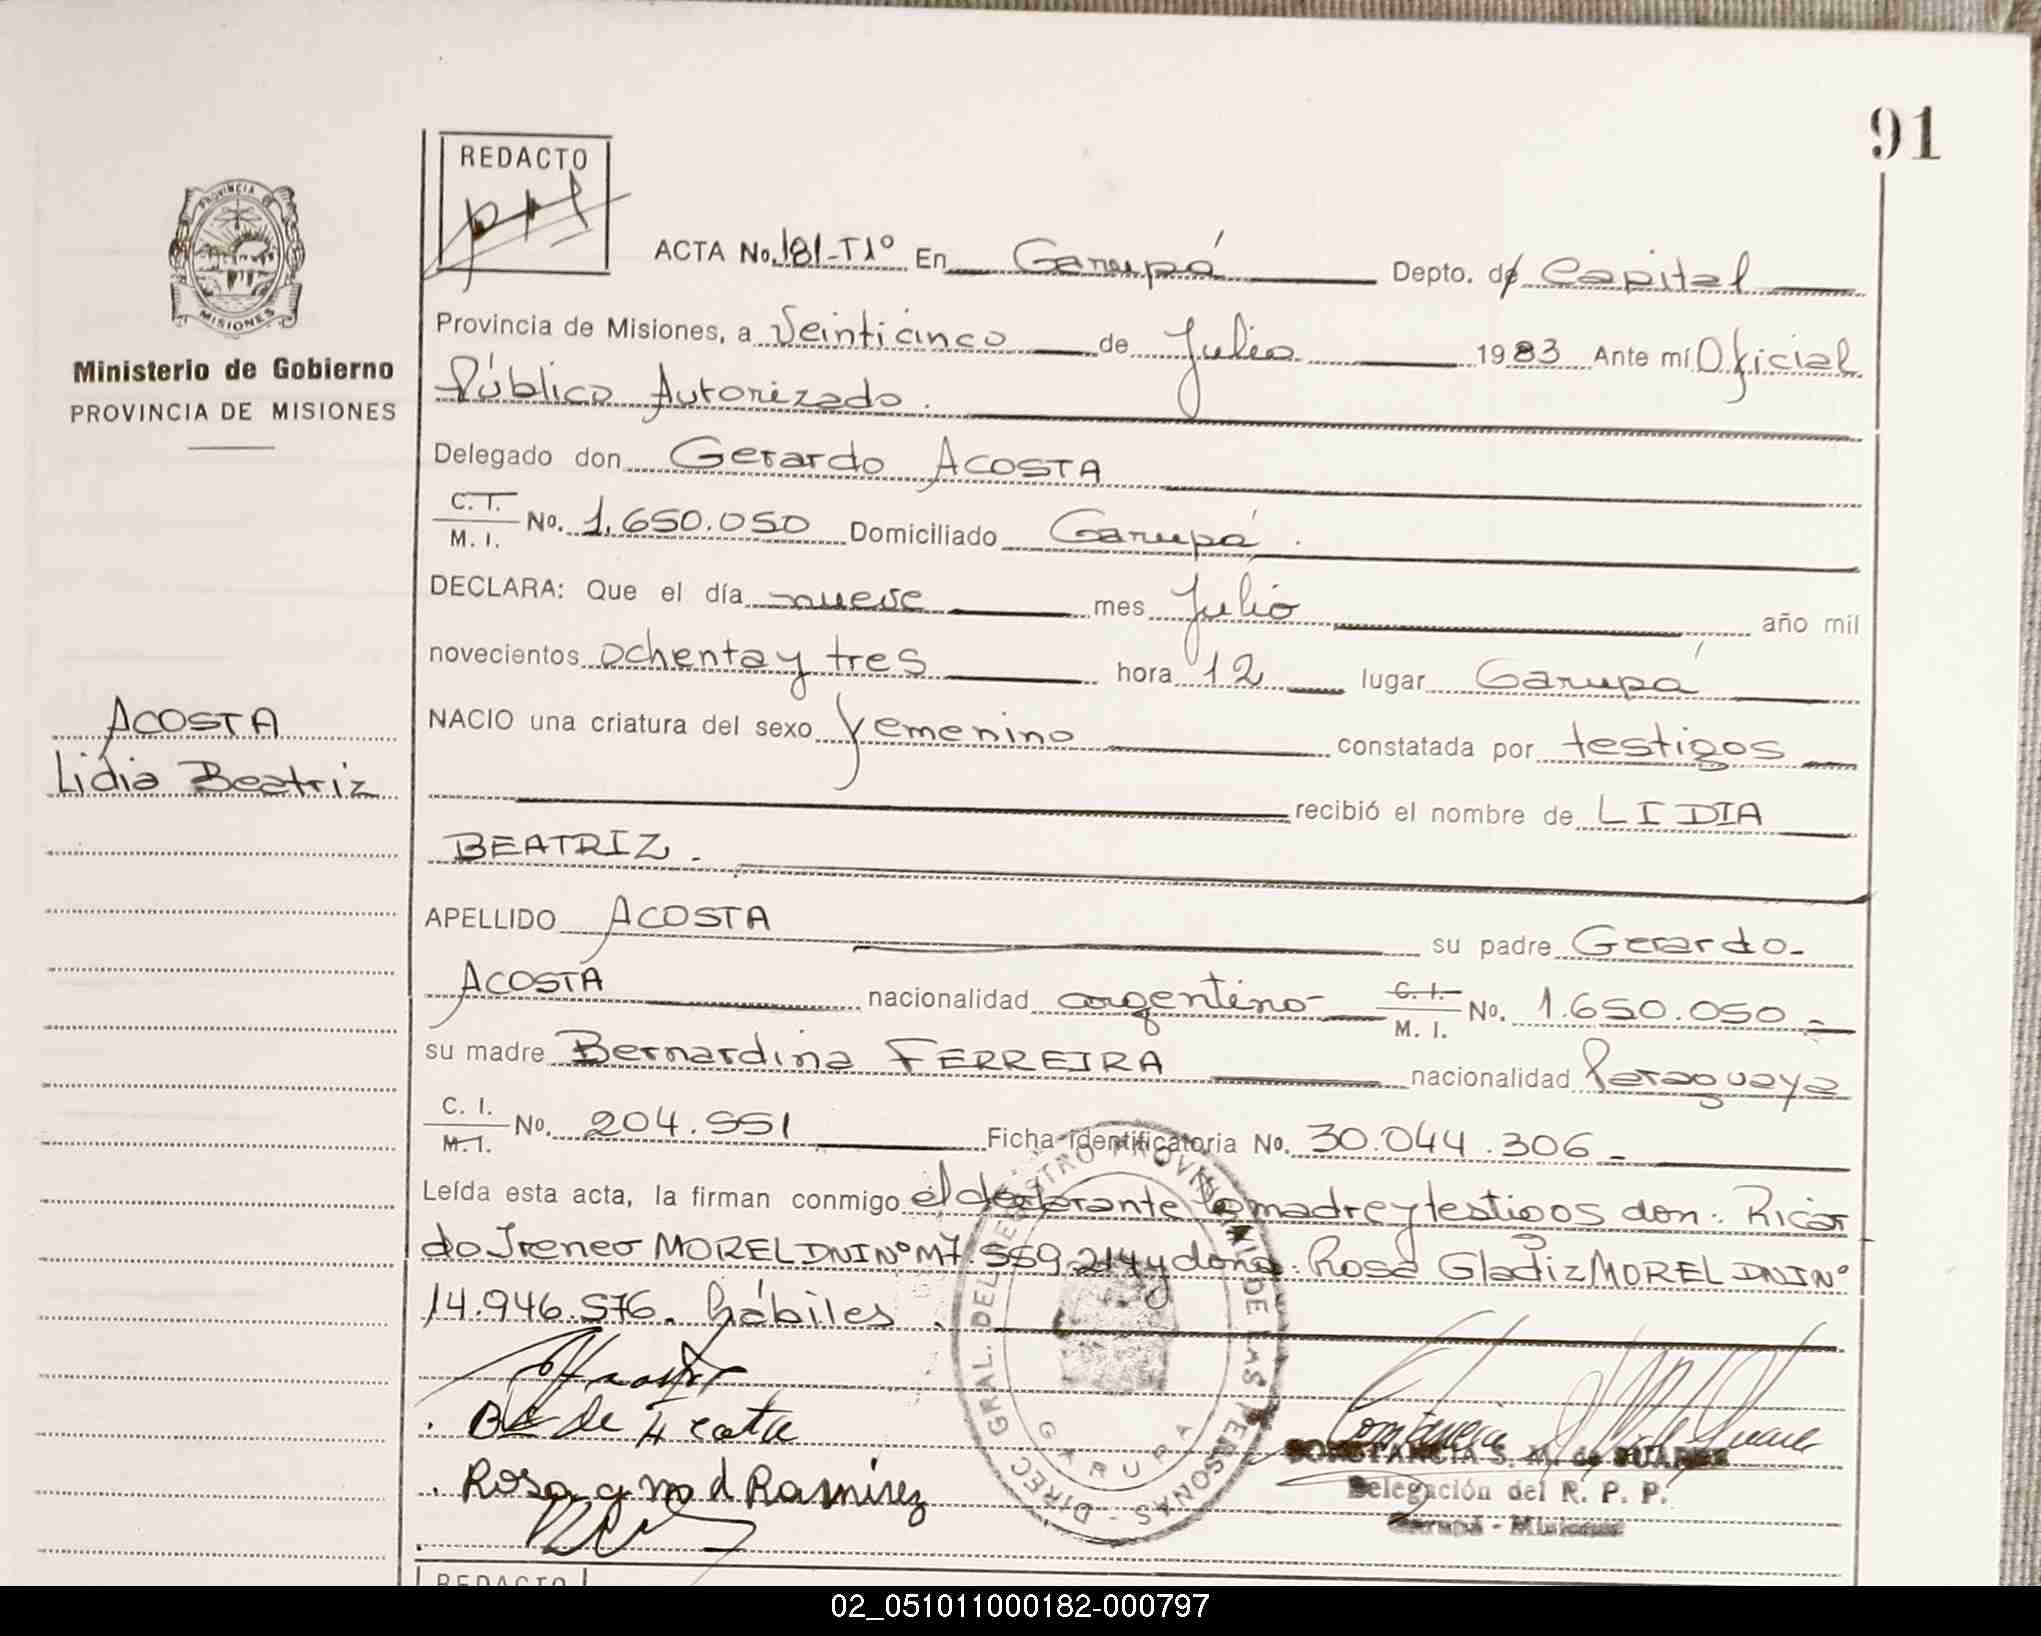 91
REDACTO
PROVINCIA DE
MISIONES
Ministerio de Gobierno
PROVINCIA DE MISIONES
ACOSTA
Lidia Beatriz
ACTA No. 181-T1º En Garupá Depto. de Capital
Provincia de Misiones, a Veinticinco de Julio 1983 Ante mí Oficial
Público Autorizado.
Delegado don Gerardo ACOSTA
C. I. M. I. No. 1.650.050 Domiciliado Garupá.
DECLARA: Que el día nueve mes Julio año mil
novecientos ochenta y tres hora 12 lugar Garupá
NACIO una criatura del sexo femenino constatada por testigos
recibió el nombre de LIDIA
BEATRIZ.
APELLIDO ACOSTA su padre Gerardo-
ACOSTA nacionalidad argentino- C. I. M. I. No. 1.650.050-
su madre Bernardina FERREIRA nacionalidad Paraguaya
C. I. M. I. No. 204.551 Ficha identificatoria No. 30.044.306-
Leída esta acta, la firman conmigo el declarante la madre y testigos don: Ricar
do Ireneo MOREL DNI Nº M7.559.214 y doña: Rosa Gladiz MOREL DNI Nº
14.946.576. hábiles.
B de Acosta
Rosa g m d Ramirez
DIREC. GRAL. DEL REGISTRO PROVINCIAL DE LAS PERSONAS -
GARUPA
CONSTANCIA S. M. de SUAREZ
Delegación del R. P. P.
Garupá - Misiones
REDACTO
02_051011000182-000797